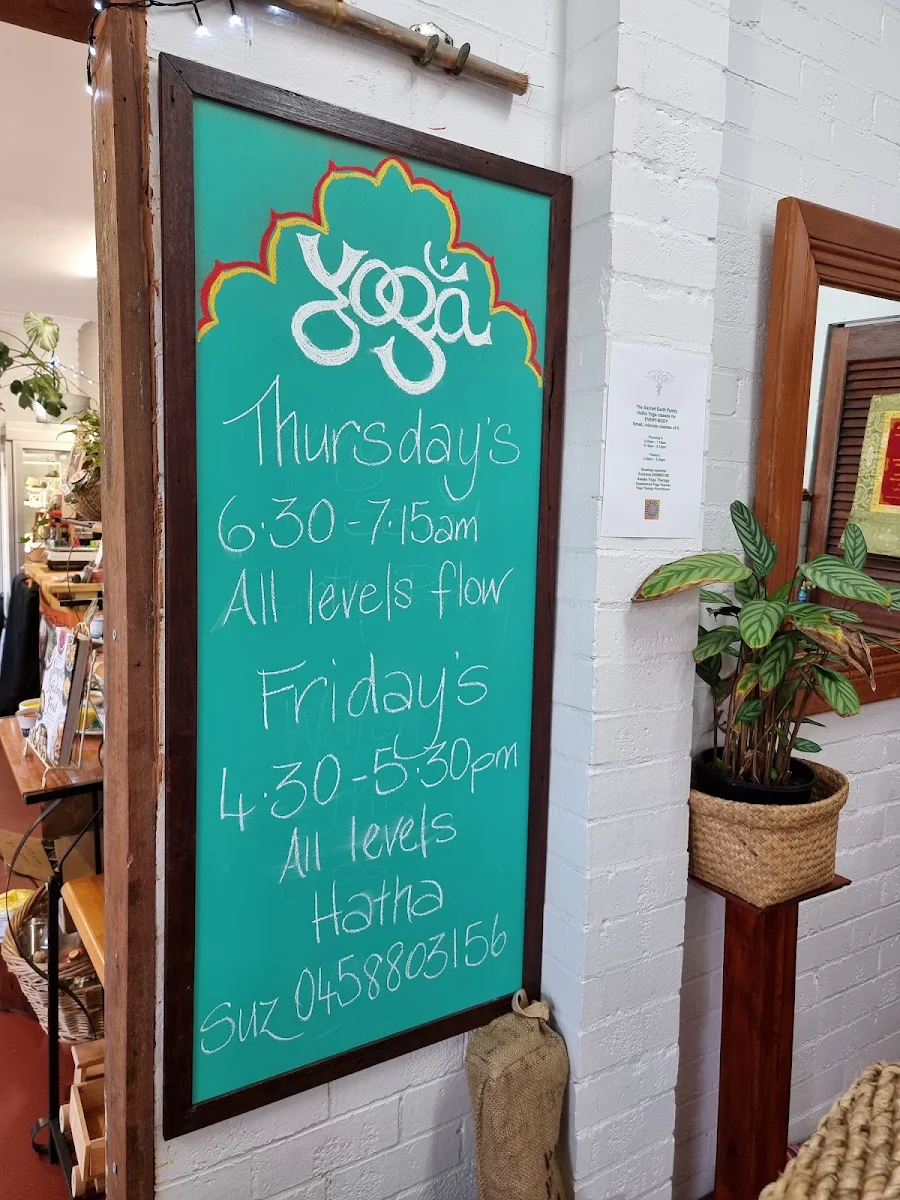 yoga
Thursday's
6.30 - 7.15am
All levels flow
Friday's
4.30 - 5.30pm
All levels
Hatha
Suz 0458803156
The Sacred Earth Pantry
Hatha Yoga classes for
EVERY-BODY
Small, intimate classes of 6
Thursday's
Friday's